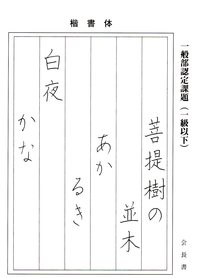 一般部認定課題(一級以下)
会長書
楷書体
菩提樹の
並木
あか
るき
白夜
かな